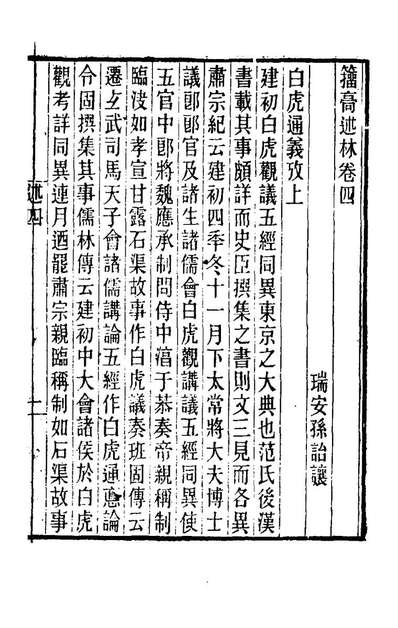 籀高述林卷四
瑞安孫詒讓
白虎通義攷上
建初白虎觀議五經同異東京之大典也范氏後漢
書載其事頗詳而史臣撰集之書則文三見而各異
肅宗紀云建初四秊冬十一月下太常將大夫博士
議郎郎官及諸生諸儒會白虎觀講議五經同異使
五官中郎將魏應承制問侍中淳于恭奏帝親稱制
臨決如孝宣甘露石渠故事作白虎議奏班固傳云
遷玄武司馬天子會諸儒講論五經作白虎通悳論
令固撰集其事儒林傳云建初中大會諸侯於白虎
觀考詳同異連月迺罷肅宗親臨稱制如石渠故事
述四
一